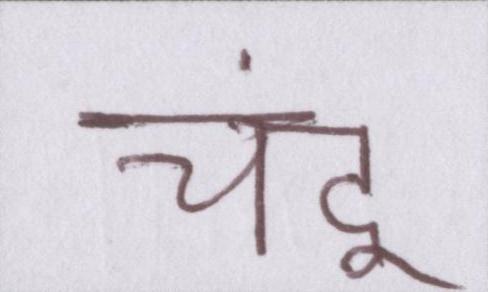 चंदू